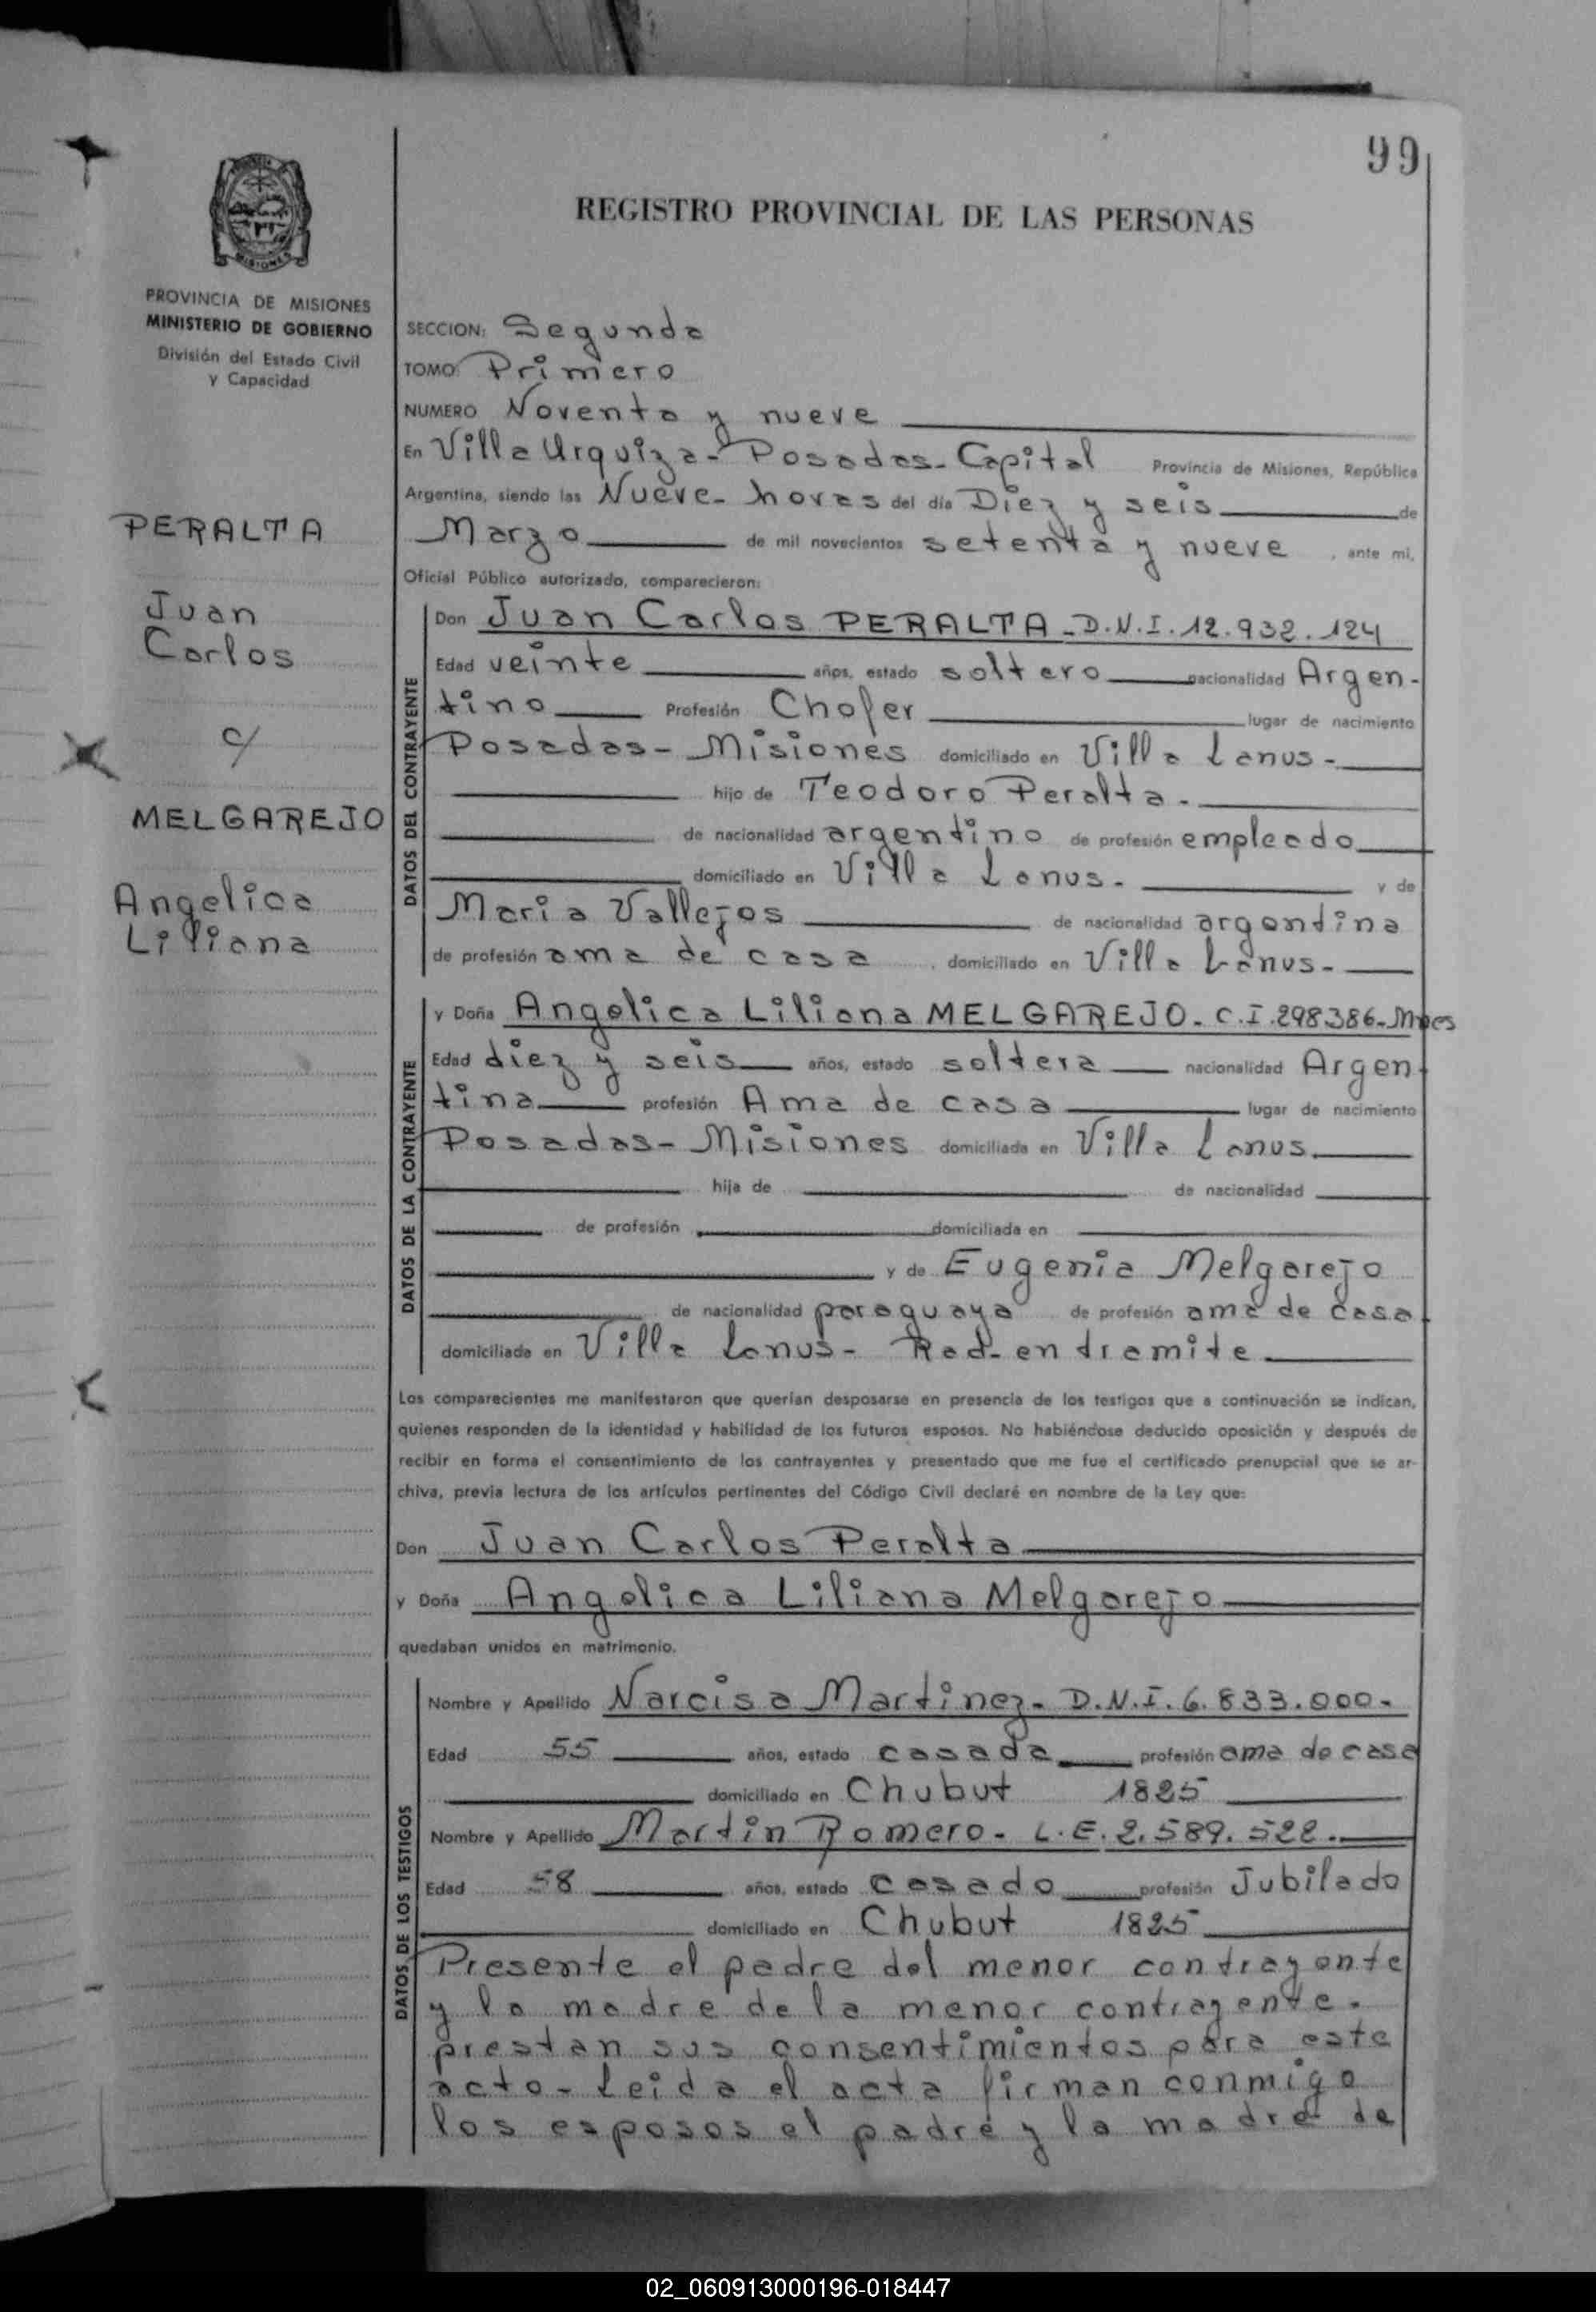 99
REGISTRO PROVINCIAL DE LAS PERSONAS
MISIONES
PROVINCIA DE MISIONES
MINISTERIO DE GOBIERNO
División del Estado Civil
y Capacidad
PERALTA
Juan
Carlos
c/
MELGAREJO
Angelica
Liliana
SECCION: Segunda
TOMO: Primero
NUMERO Noventa y nueve
En Villa Urquiza - Posadas - Capital Provincia de Misiones, República
Argentina, siendo las Nueve - horas del día Diez y seis de
Marzo de mil novecientos setenta y nueve, ante mi,
Oficial Público autorizado, comparecieron:
DATOS DEL CONTRAYENTE
Don Juan Carlos PERALTA - D.N.I. 12.932.124
Edad veinte años, estado soltero nacionalidad Argen-
tino Profesión Chofer lugar de nacimiento
Posadas - Misiones domiciliado en Villa Lanus -
hijo de Teodoro Peralta -
de nacionalidad argentino de profesión empleado
domiciliado en Villa Lanus - y de
Maria Vallejos de nacionalidad argentina
de profesión ama de casa, domiciliado en Villa Lanus -
DATOS DE LA CONTRAYENTE
y Doña Angelica Liliana MELGAREJO - C.I. 298386 - Mnes
Edad diez y seis años, estado soltera nacionalidad Argen
tina profesión Ama de casa lugar de nacimiento
Posadas - Misiones domiciliada en Villa Lanus
hija de de nacionalidad
de profesión domiciliada en
y de Eugenia Melgarejo
de nacionalidad paraguaya de profesión ama de casa
domiciliada en Villa Lanus - Rad - en tramite
Los comparecientes me manifestaron que querían desposarse en presencia de los testigos que a continuación se indican,
quienes responden de la identidad y habilidad de los futuros esposos. No habiéndose deducido oposición y después de
recibir en forma el consentimiento de los contrayentes y presentado que me fue el certificado prenupcial que se ar-
chiva, previa lectura de los artículos pertinentes del Código Civil declaré en nombre de la Ley que:
Don Juan Carlos Peralta
y Doña Angelica Liliana Melgarejo
quedaban unidos en matrimonio.
DATOS DE LOS TESTIGOS
Nombre y Apellido Narcisa Martinez - D.N.I. 6.833.000 -
Edad 55 años, estado casada profesión ama de casa
domiciliado en Chubut 1825
Nombre y Apellido Martin Romero - L.E. 2.589.522 -
Edad 58 años, estado casado profesión Jubilado
domiciliado en Chubut 1825
Presente el padre del menor contrayente
y la madre de la menor contrayente -
prestan sus consentimientos para este
acto - Leida el acta firman conmigo
los esposos el padre y la madre de
02_060913000196-018447